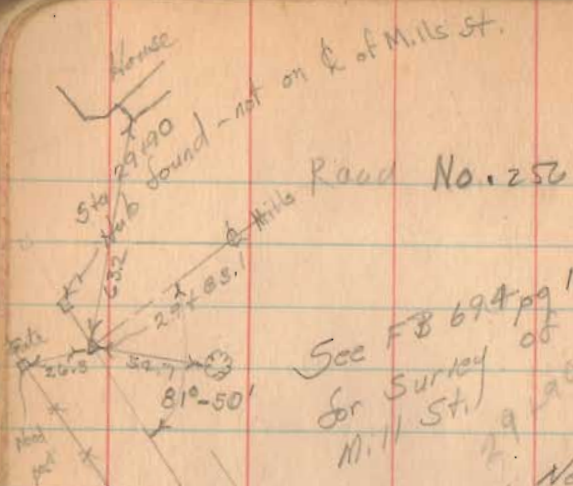 House
Sta 29+90
Hub found - not on ℄ of Mills St.
Road No. 256
℄ Mills
63.2
29+83.1
26.3
52.7
81°-50'
See FB 694 pg
for Survey of
Mill St.